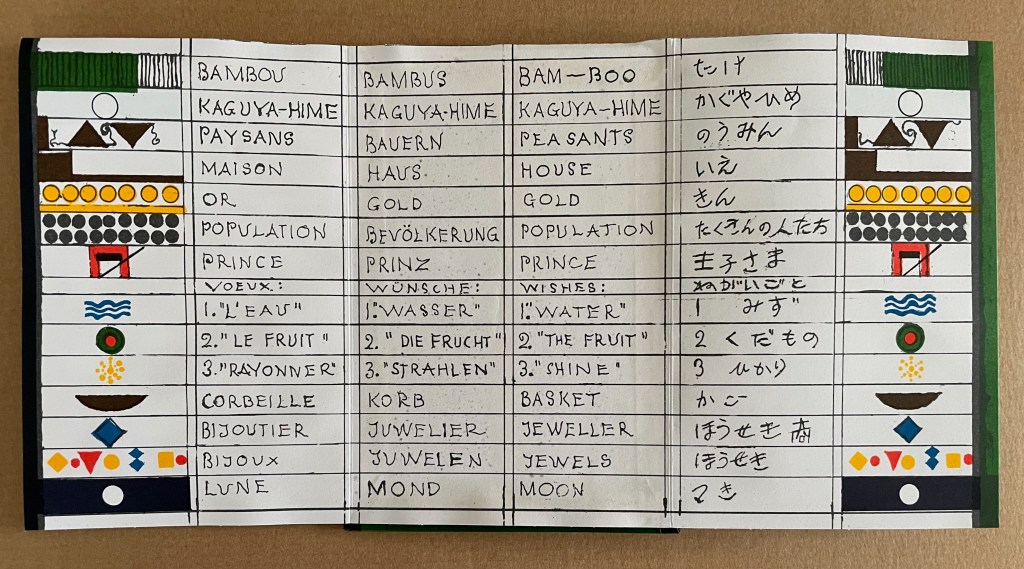 BAMBOU BAMBUS BAM-BOO たけ
KAGUYA-HIME KAGUYA-HIME KAGUYA-HIME かぐやひめ
PAYSANS BAUERN PEASANTS のうみん
MAISON HAUS HOUSE いえ
OR GOLD GOLD きん
POPULATION BEVÖLKERUNG POPULATION たくさんの人たち
PRINCE PRINZ PRINCE 王子さま
VOEUX: WÜNSCHE: WISHES: ねがいごと
1. "L'EAU" 1. "WASSER" 1. "WATER" 1 みず
2. "LE FRUIT" 2. "DIE FRUCHT" 2. "THE FRUIT" 2 くだもの
3. "RAYONNER" 3. "STRAHLEN" 3. "SHINE" 3 ひかり
CORBEILLE KORB BASKET かご
BIJOUTIER JUWELIER JEWELLER ほうせき商
BIJOUX JUWELEN JEWELS ほうせき
LUNE MOND MOON つき